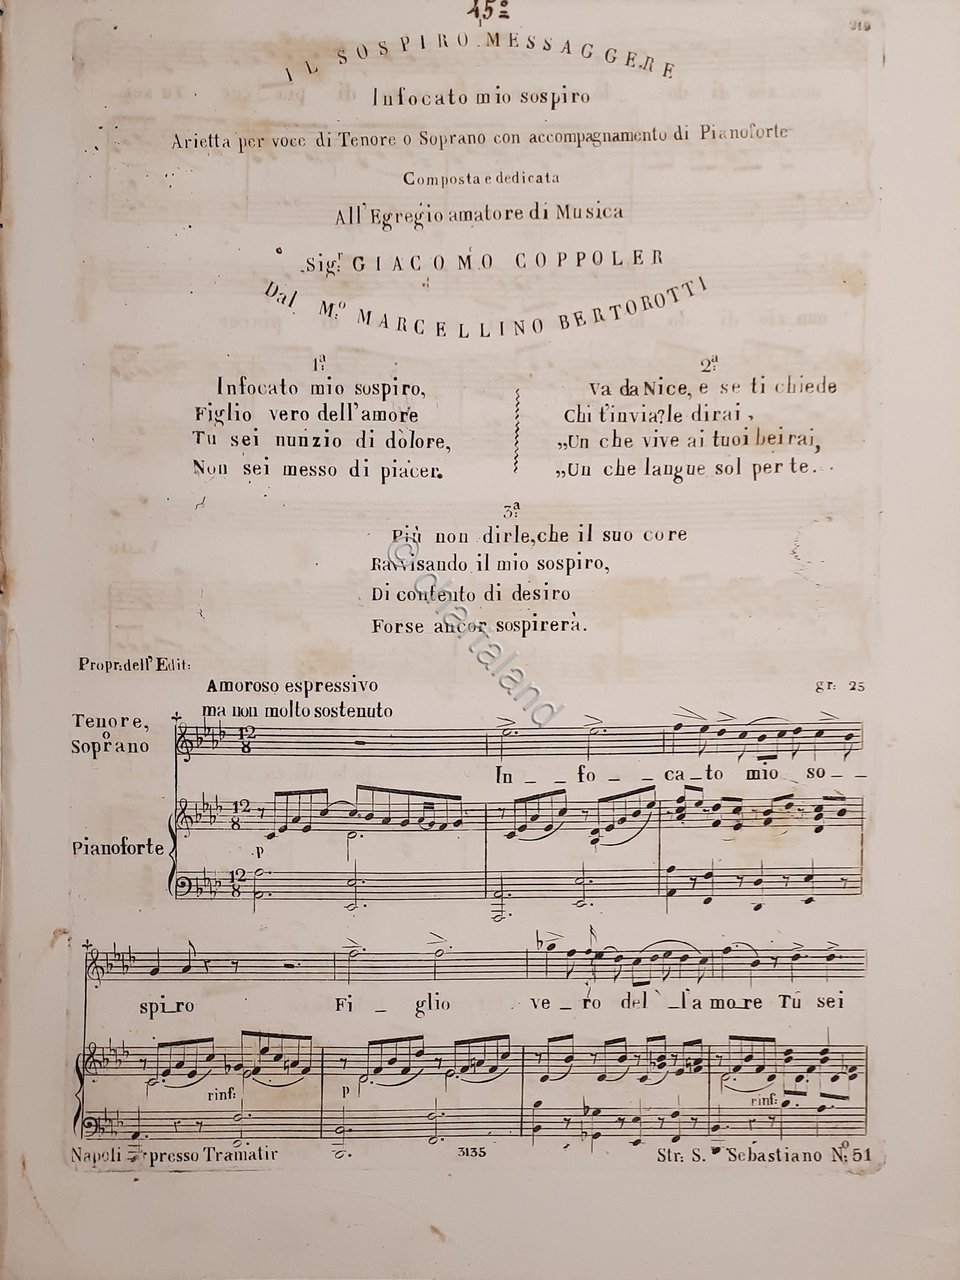 15º
219
IL SOSPIRO MESSAGGERE
Infocato mio sospiro
Arietta per voce di Tenore o Soprano con accompagnamento di Pianoforte
Composta e dedicata
All'Egregio amatore di Musica
Sig.r GIACOMO COPPOLER
Dal M.o MARCELLINO BERTOROTTI
1.a
Infocato mio sospiro,
Figlio vero dell'amore
Tu sei nunzio di dolore,
Non sei messo di piacer.
2.a
Va da Nice, e se ti chiede
Chi t'invia? le dirai,
„Un che vive ai tuoi bei rai,
„Un che langue sol per te.
3.a
Più non dirle, che il suo core
Ravvisando il mio sospiro,
Di contento di desiro
Forse ancor sospirerà.
© chartaland
Propr: dell' Edit:
gr: 25
Amoroso espressivo
ma non molto sostenuto
Tenore,
o
Soprano
12
8
In _ _ fo _ _ ca _ to mio so _ _
Pianoforte
12
8
p
12
8
spi_ro Fi _ glio ve _ ro del _ l'a mo_re Tu sei
rinf: p rinf:
Napoli presso Tramatir 3135 Str: S. Sebastiano N.o 51